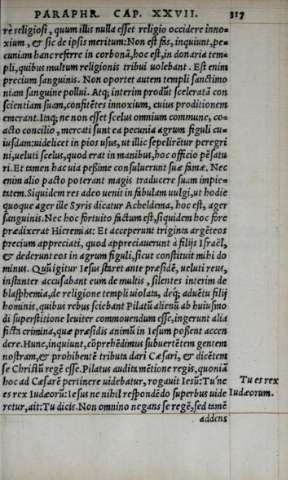 PARAPHR. CAP. XXVII. 317
re religiosi, quum illis nulla esset religio occidere inno=
xium, & sic de ipsis meritum: Non est fas, inquiunt, pe=
cuniam hanc referre in corbonã, hoc est, in donaria tem=
pli, quibus multum religionis tribui uolebant. Est enim
precium sanguinis. Non oportet autem templi sanctimo
niam sanguine pollui. Atq; interim produt sceleratã con
scientiam suam, confitêtes innoxium, cuius proditionem
emerant. Itaq; ne non esset scelus omnium commune, co=
acto concilio, mercati sunt ea pecunia agrum figuli cu=
iusdam: uidelicet in pios usus, ut illic sepelirêtur peregri
ni, ueluti scelus, quod erat in manibus, hoc officio pêsatu
ri. Et tamen hac uia pessime consuluerunt suæ famæ. Nec
enim alio pacto poterant magis traducere suam impie=
tatem. Siquidem res adeo uenit in fabulam uulgi, ut hodie
quoque ager ille Syris dicatur Acheldema, hoc est, ager
sanguinis. Nec hoc fortuito factum est, siquidem hoc fore
prædixerat Hieremias: Et acceperunt triginta argêteos
precium appreciati, quod appreciauerunt à filijs Israël,
& dederunt eos in agrum figuli, sicut constituit mihi do
minus. Quũ igitur Iesus staret ante præsidê, ueluti reus,
instanter accusabant eum de multis, silentes interim de
blasphemia, de religione templi uiolata, deq; aduêtu filij
hominis, quibus rebus sciebant Pilatũ alienũ ab huiusmo
di superstitione leuiter commouendum esse, ingerunt alia
ficta crimina, quæ præsidis animũ in Iesum possent accen
dere. Hunc, inquiunt, côprehêdimus subuertêtem gentem
nostram, & prohibentê tributa dari Cæsari, & dicêtem
se Christũ regê esse. Pilatus audita mêtione regis, quoniã
hoc ad Cæsarê pertinere uidebatur, rogauit Iesũ: Tu'ne
Tu es rex
es rex Iudæorũ: Iesus ne nihil respôdêdo superbus uide
Iudæorum.
retur, ait: Tu dicis. Non omnino negans se regê, sed tamê
addens